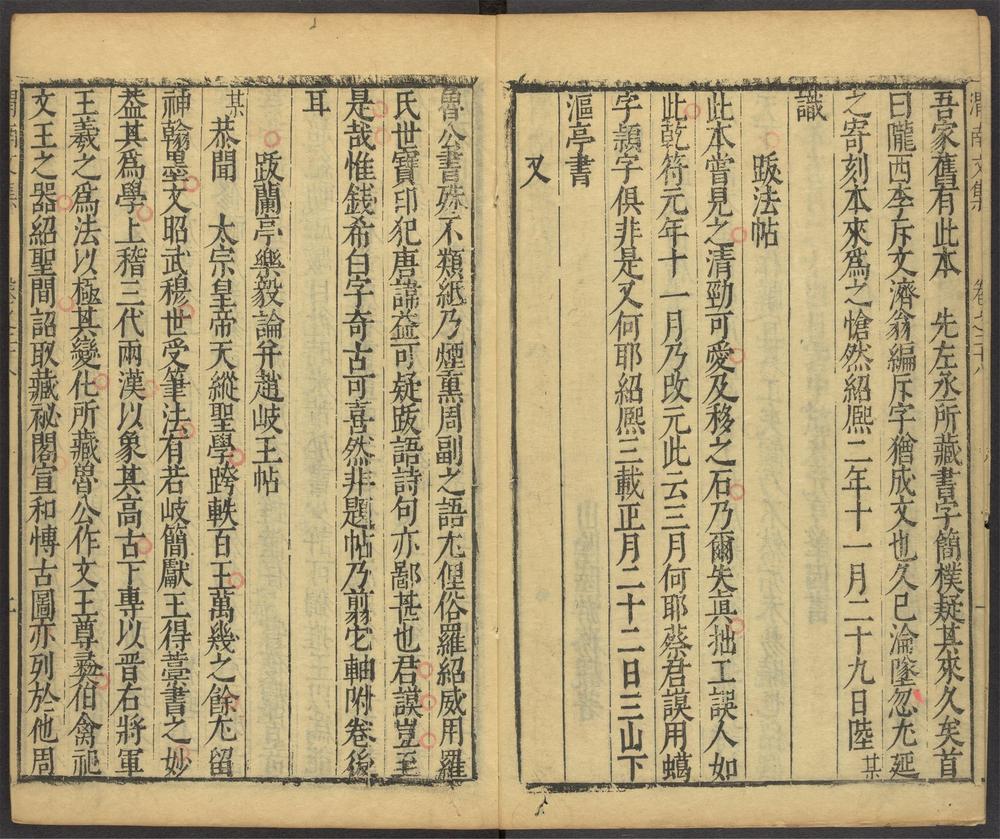 渭南文集　卷之二十八
吾家舊有此本　先左丞所藏書字簡樸疑其來久矣首
曰隴西本斥文濟翁編斥字猶成文也久已淪墜忽尤延
之寄刻本來爲之愴然紹熙二年十一月二十九日陸某
識
跋法帖
此本嘗見之清勁可愛及移之石乃爾失真拙工誤人如
此乾符元年十一月乃改元此云三月何耶蔡君謨用蠲
字顥字俱非是又何耶紹熙三載正月二十二日三山下
漚亭書
又
魯公書殊不類紙乃煙熏周副之語尤俚俗羅紹威用羅
氏世寶印犯唐諱益可疑跋語詩句亦鄙甚也君謨豈至
是哉惟錢希白字奇古可喜然非題帖乃翦它軸附卷後
耳
跋蘭亭樂毅論并趙岐王帖
某恭聞　太宗皇帝天縱聖學跨軼百王萬幾之餘尤留
神翰墨文昭武穆世受筆法有若岐簡獻王得藁書之妙
葢其爲學上稽三代兩漢以象其高古下專以晉右將軍
王羲之爲法以極其變化所藏魯公作文王尊彝伯禽祀
文王之器紹聖間詔取藏祕閣宣和博古圖亦列於他周